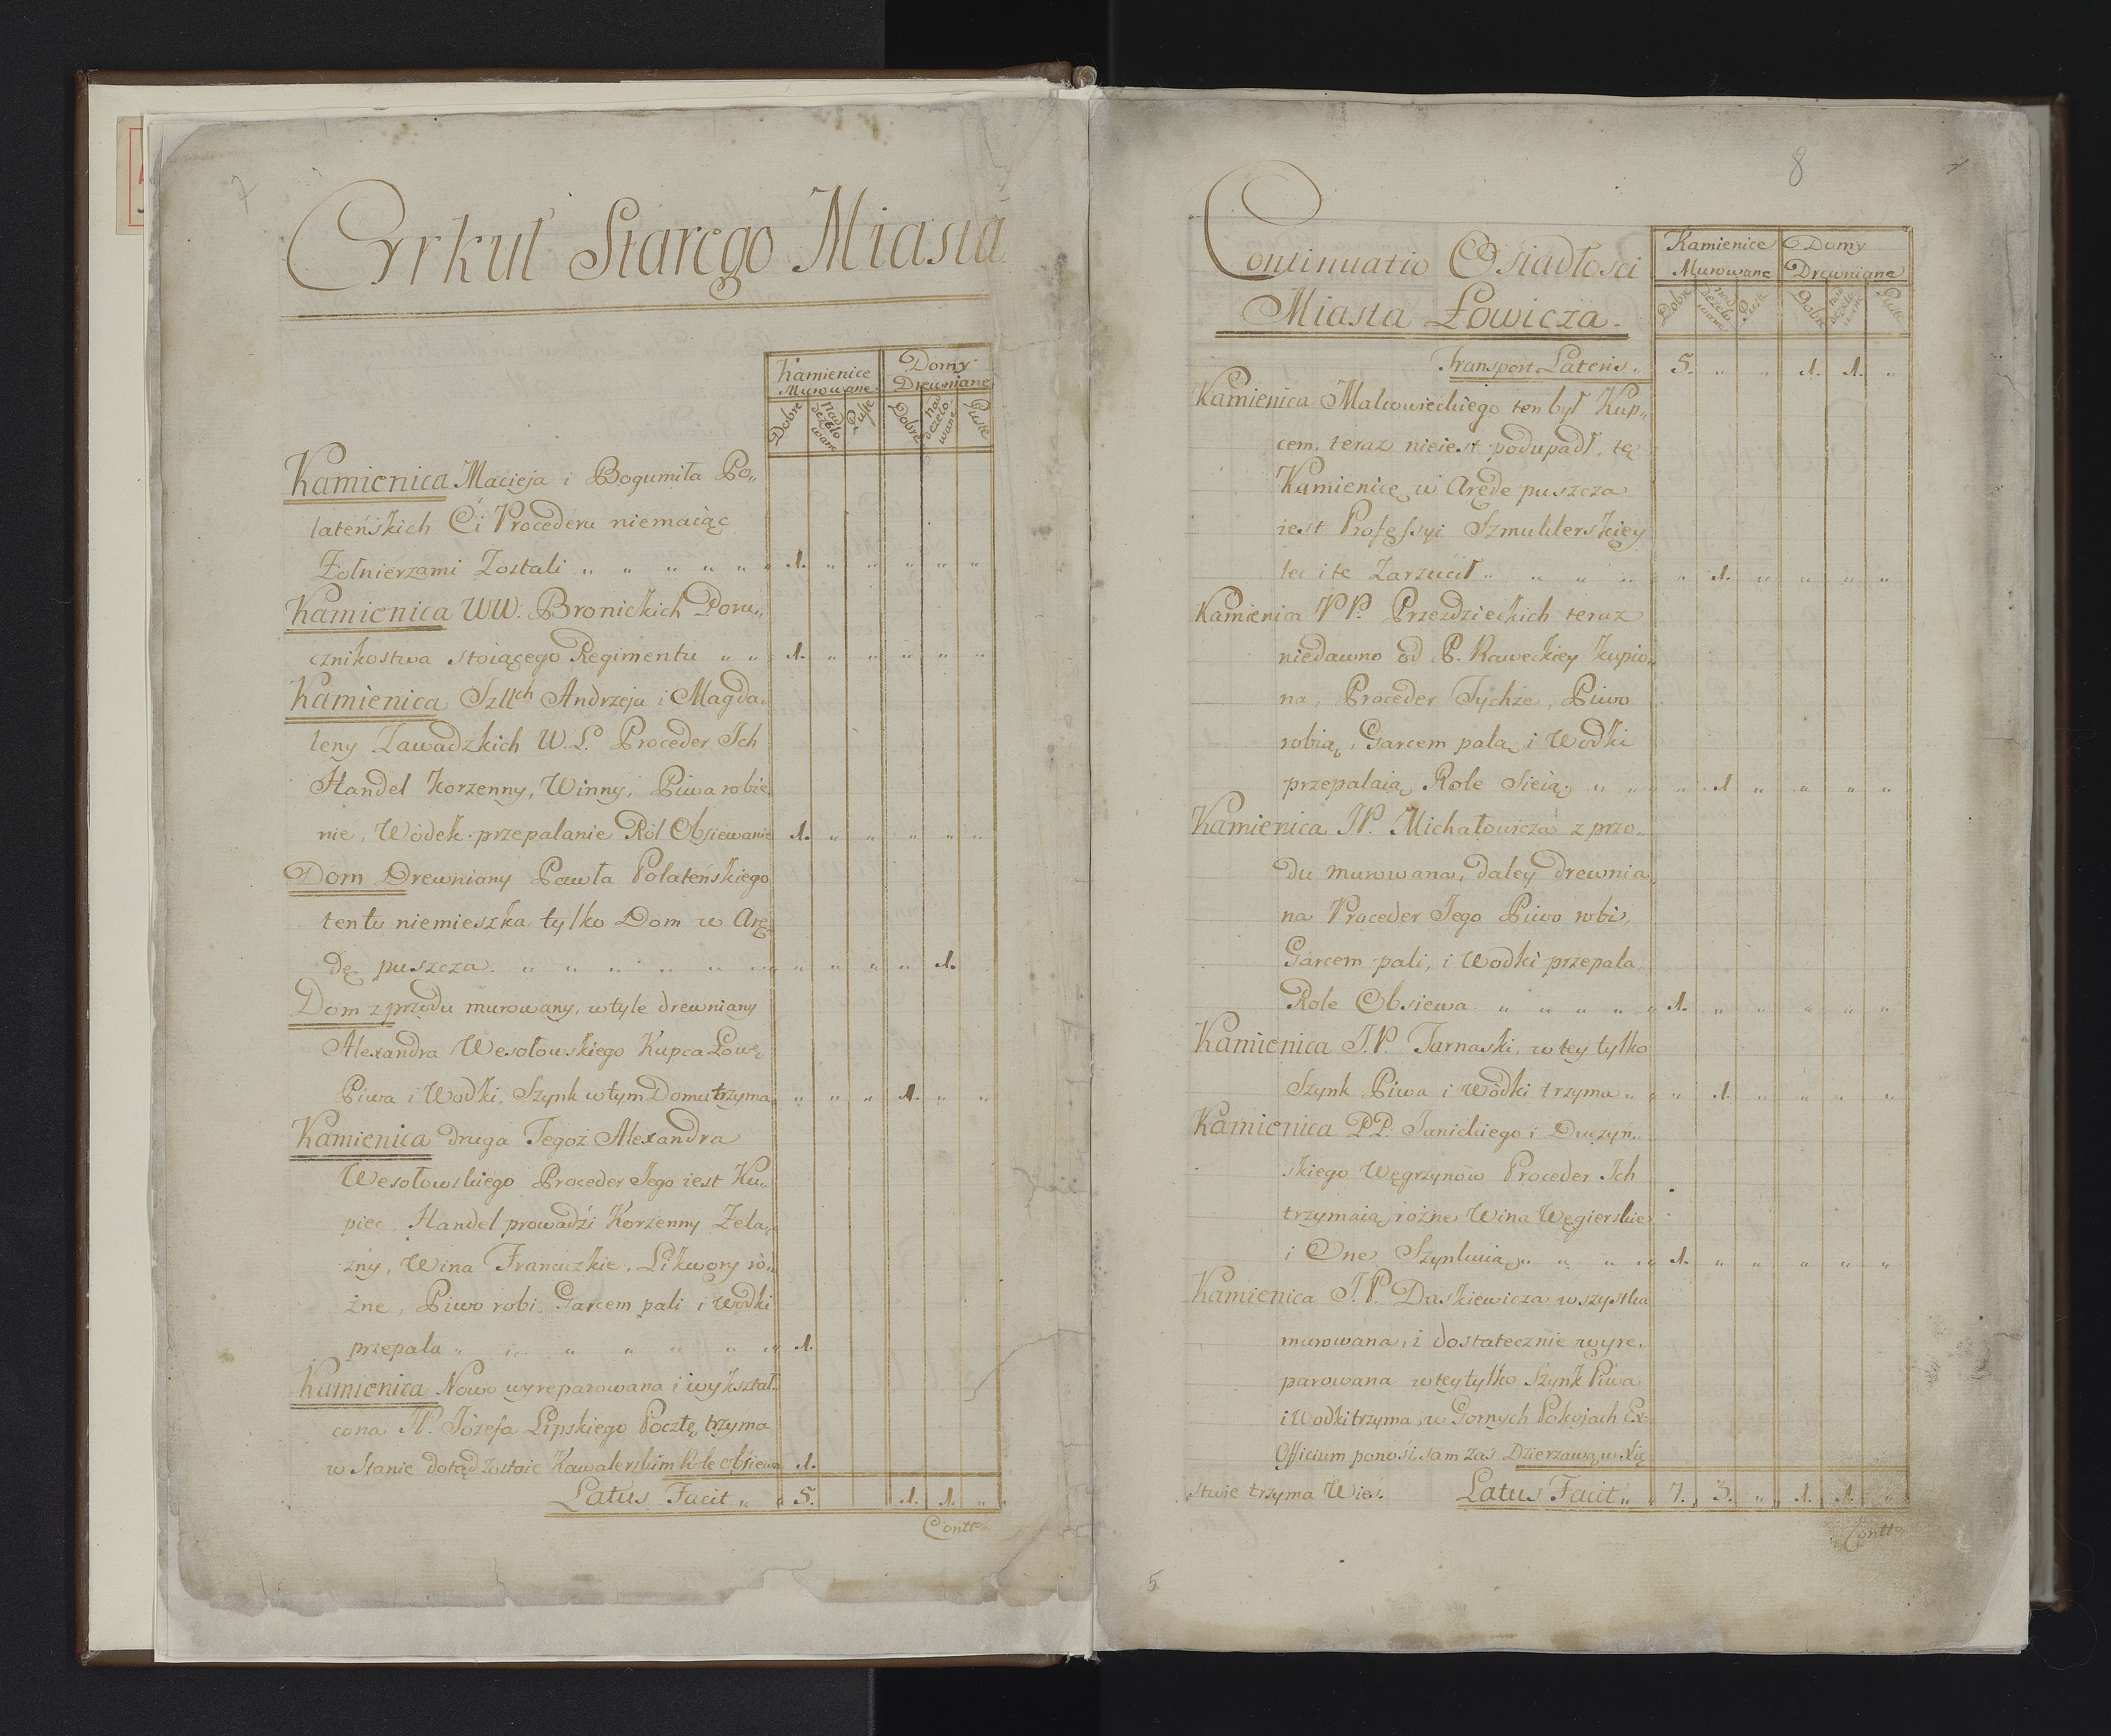 7
Cyrkuł Starego Miasta
Kamienice Murowane Domy Drewniane
Dobre nad dezelo wane Puste Dobre nad dezelo wane Puste
Kamienica Macieja i Bogumiła Po„
lateńskich Ci Procederu niemaiąc
Żołnierzami Zostali „ „ „ „ „ „ 1. „ „ „ „ „
Kamienica WW. Bronickich Poru„
cznikostwa stoiącego Regimentu „ „ 1. „ „ „ „ „
Kamienica Szllch Andrzeja i Magda„
leny Zawadzkich W.L. Proceder Ich
Handel Korzenny, Winny, Piwa robie„
nie, Wódek przepalanie Ról Obsiewanie 1. „ „ „ „ „
Dom Drewniany Pawła Polateńskiego
ten tu niemieszka tylko Dom w Arę„
dę puszcza. „ „ „ „ „ „ „ „ „ „ „ 1.
Dom z przodu murowany, w tyle drewniany
Alexandra Wesołowskiego Kupca Łowi:
Piwa i Wodki, Szynk w tym Domu trzyma „ „ „ 1. „ „
Kamienica druga Tegoż Alexandra
Wesołowskiego Proceder Jego iest Ku„
piec, Handel prowadźi Korzenny Żela„
zny, Wina Francuzkie, Likwory ró„
żne, Piwo robi, Garcem pali i Wodki
przepala „ „ „ „ „ „ „ 1.
Kamienica Nowo wyreparowana i wykształ„
cona JP. Józefa Lipskiego Pocztę trzyma
w Stanie dotąd zostaie Kawalerskim Role obsiewa 1.
Latus Facit „ „ 5. 1. 1. „
Contto
8
Continuatio Osiadłosci
Miasta Łowicza.
Kamienice Murowane Domy Drewniane
Dobre nad dezelo wane Puste Dobre nad dezelo wane Puste
Transport Lateris. 5. „ „ 1. 1. „
Kamienica Malowieckiego ten był Kup„
cem, teraz nieiest podupadł, tę
Kamienicę w Arędę puszcza
iest Professyi Szmuklerskiey
lec i te Zarzucił „ „ „ „ „ 1. „ „ „ „
Kamienica PP. Przezdzieckich teraz
niedawno od P. Raweckiey kupio„
na, Proceder Tychże, Piwo
robią, Garcem palą i Wodki
przepalaią Role Sieią „ „ „ 1 „ „ „ „
Kamienica JP. Michałowicza z przo„
du murowana, daley drewnia„
na Proceder Jego Piwo robi,
Garcem pali, i Wodki przepala
Role Obsiewa. „ „ „ „ „ 1. „ „ „ „ „
Kamienica J.P. Tarnaski, w tey tylko
Szynk Piwa i Wódki trzyma „ „ „ 1. „ „ „ „
Kamienica P.P. Janickiego i Duczyn„
skiego Węgrzynów Proceder Ich
trzymaią rożne Wina Węgierskie
i One Szynkuią „ „ „ „ 1. „ „ „ „ „
Kamienica J.P. Daskiewicza wszystka
murowana, i dostatecznie wyre„
parowana w tey tylko Szynk Piwa
i Wodki trzyma, w Gornych Pokojach Ex„
Officium ponosi, sam zas Dzierzawą w Xię
stwie trzyma Wies. Latus Facit „ „ 7. 3. „ 1. 1. „
Contto
5